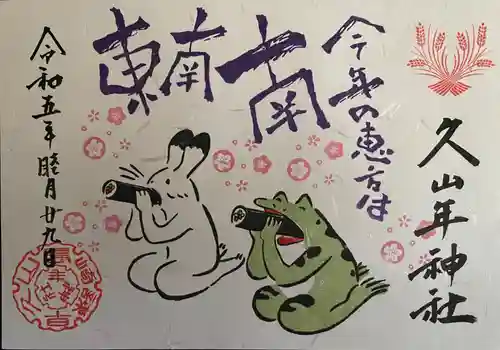 久山年神社
今年の恵方は
南南東
令和五年睦月廿九日